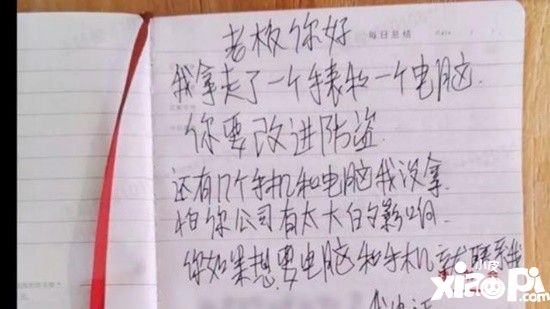 每日总结
老板你好
我拿走了一个手表和一个电脑.
你要改进防盗.
还有几个手机和电脑我没拿.
怕你公司有太大的影响.
你如果想要电脑和手机就联系我
小皮
xiaopi.com